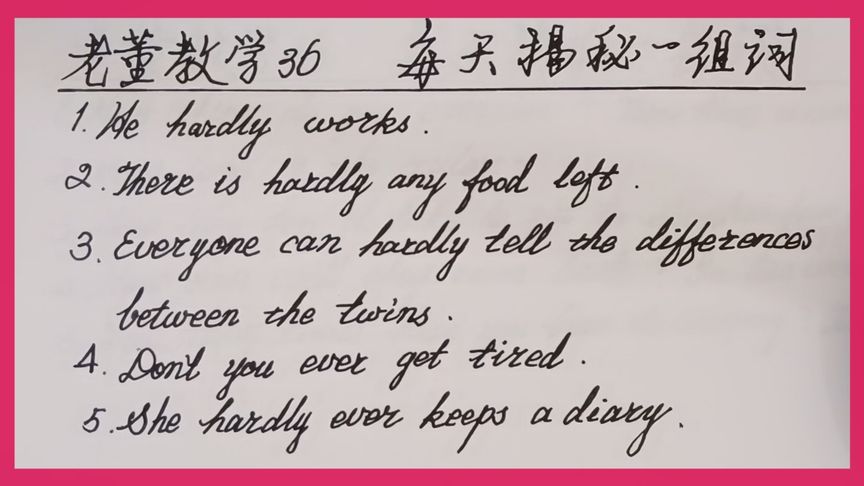 老董教学36 每天揭秘一组词
1. He hardly works.
2. There is hardly any food left.
3. Everyone can hardly tell the differences
between the twins.
4. Don't you ever get tired.
5. She hardly ever keeps a diary.